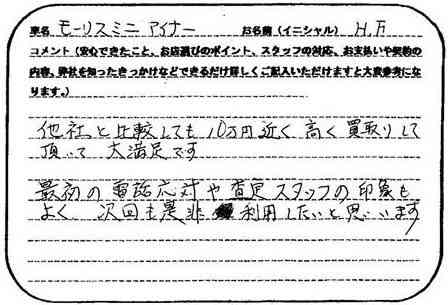 車名 モーリスミニ マイナー お名前（イニシャル） H.F
コメント（安心できたこと、お店選びのポイント、スタッフの対応、お支払いや契約の
内容、弊社を知ったきっかけなどできるだけ詳しくご記入いただけますと大変参考にな
ります。）
他社と比較しても10万円近く高く買取りして
頂いて 大満足です
最初の電話応対や査定スタッフの印象も
よく 次回も是非 利用したいと思います